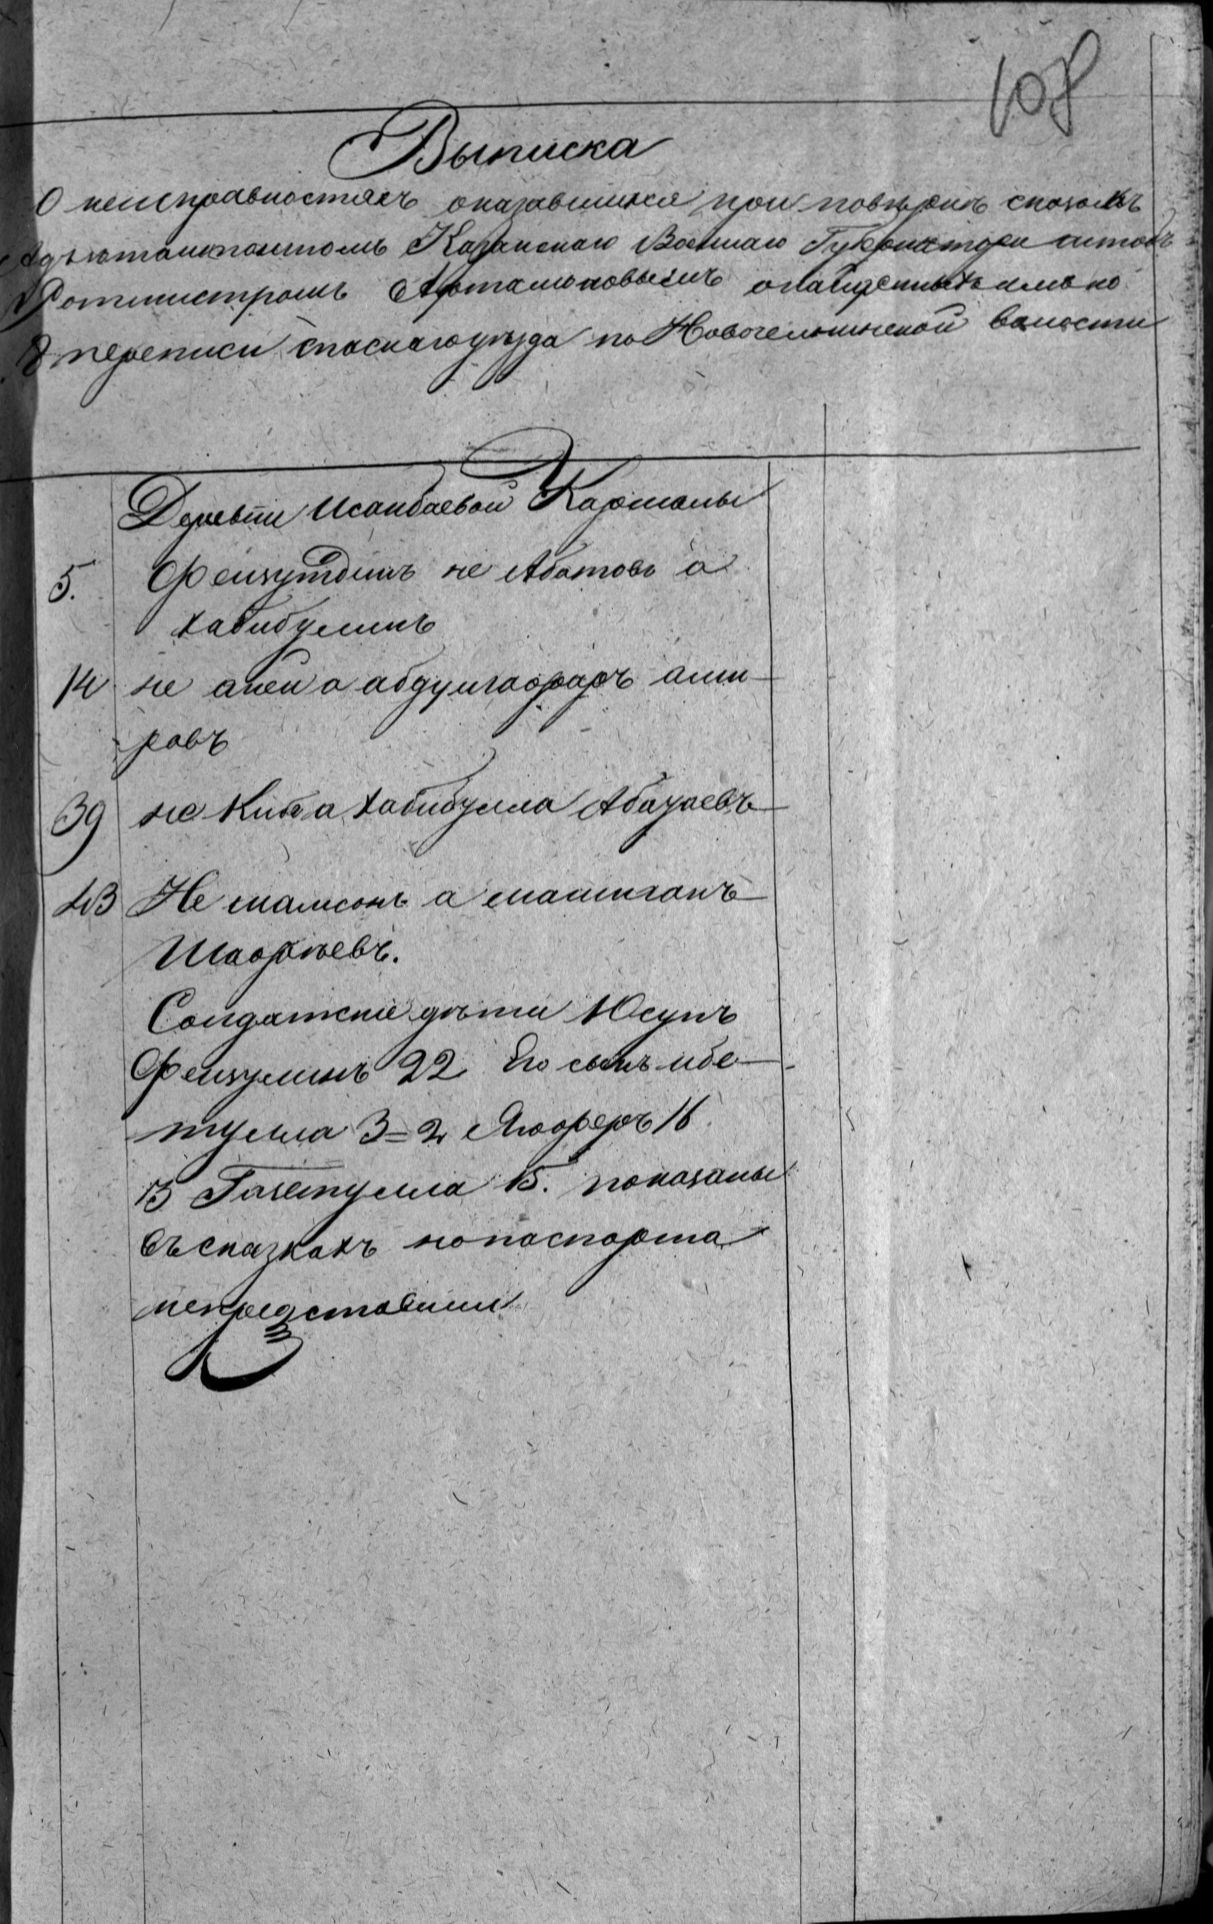 108
Выписка
О неисправностяхъ оказавшихся при поверкѣ сказокъ
Адъютантомъ Казанскаго Военнаго Губернатора
Ротмистромъ Артамоновымъ
8 переписи спаскаго уѣзда по Новочелнинской волости
Деревни Исанбаевой Кармалы
5. Феизутдинъ не Абатовъ а
хабибулинъ
14 не а абдулгафаръ ами-
ровъ
39 не а хабибулла Абазаевъ
43 Не а
Шафѣевъ.
Солдатские дѣти Юсупъ
Феизулинъ 22 Его сынъ ибе-
тулла 3=2 Ягоферъ 16
15. показаны
въ сказкахъ но паспорта
непредставили